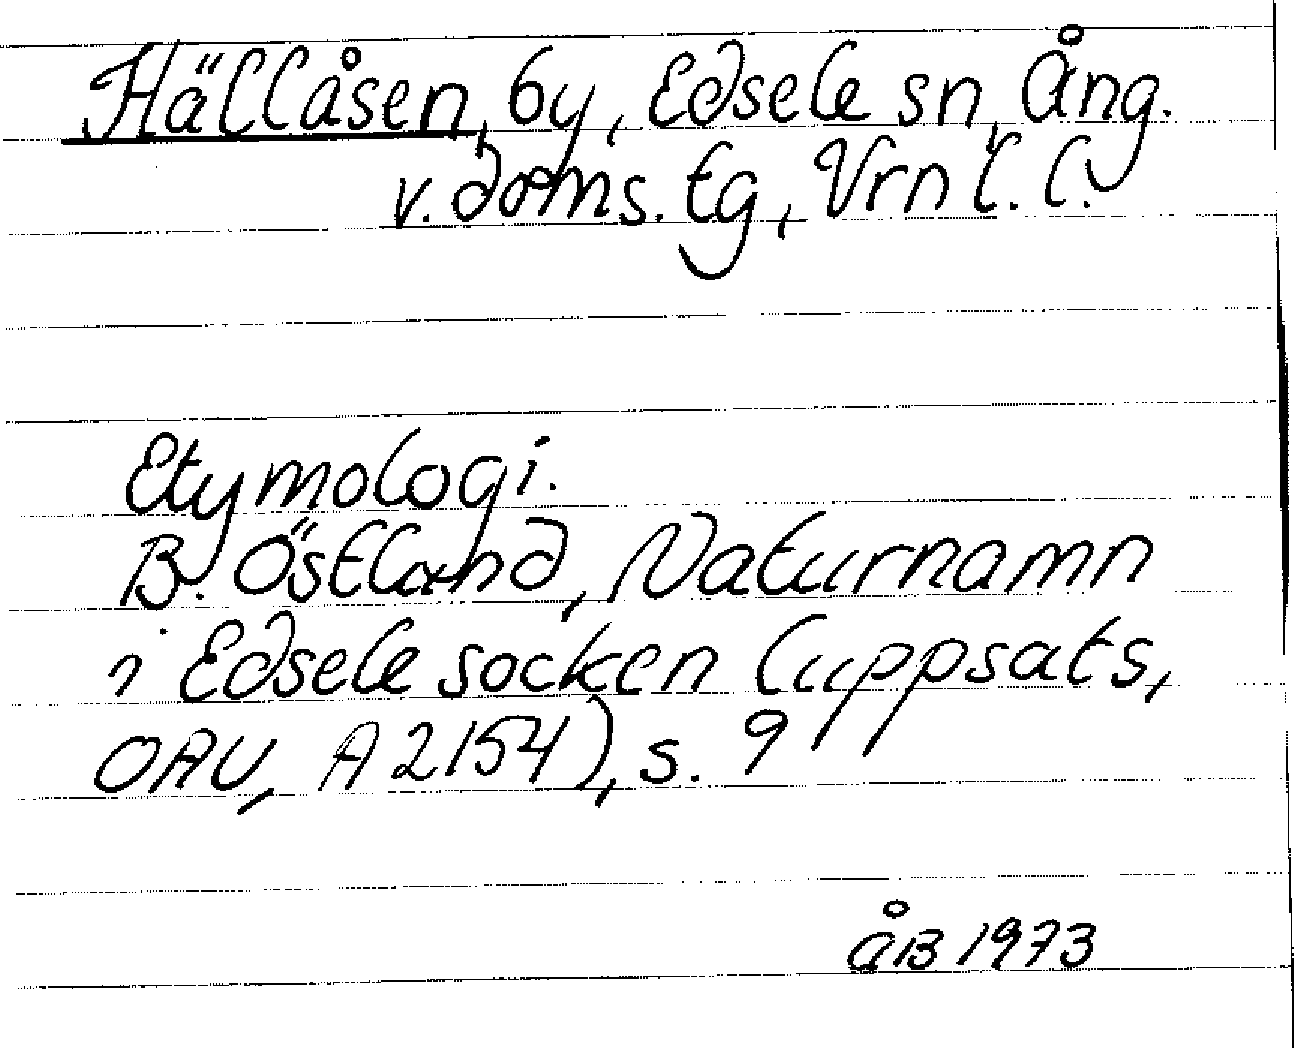 Hällåsen, by, Edsele sn, Ång.
v. doms. tg, Vrnl. l.
Etymologi.
B. Östland, Naturnamn
i Edsele socken (uppsats,
OAU, A 2154), s. 9
ÅB 1973